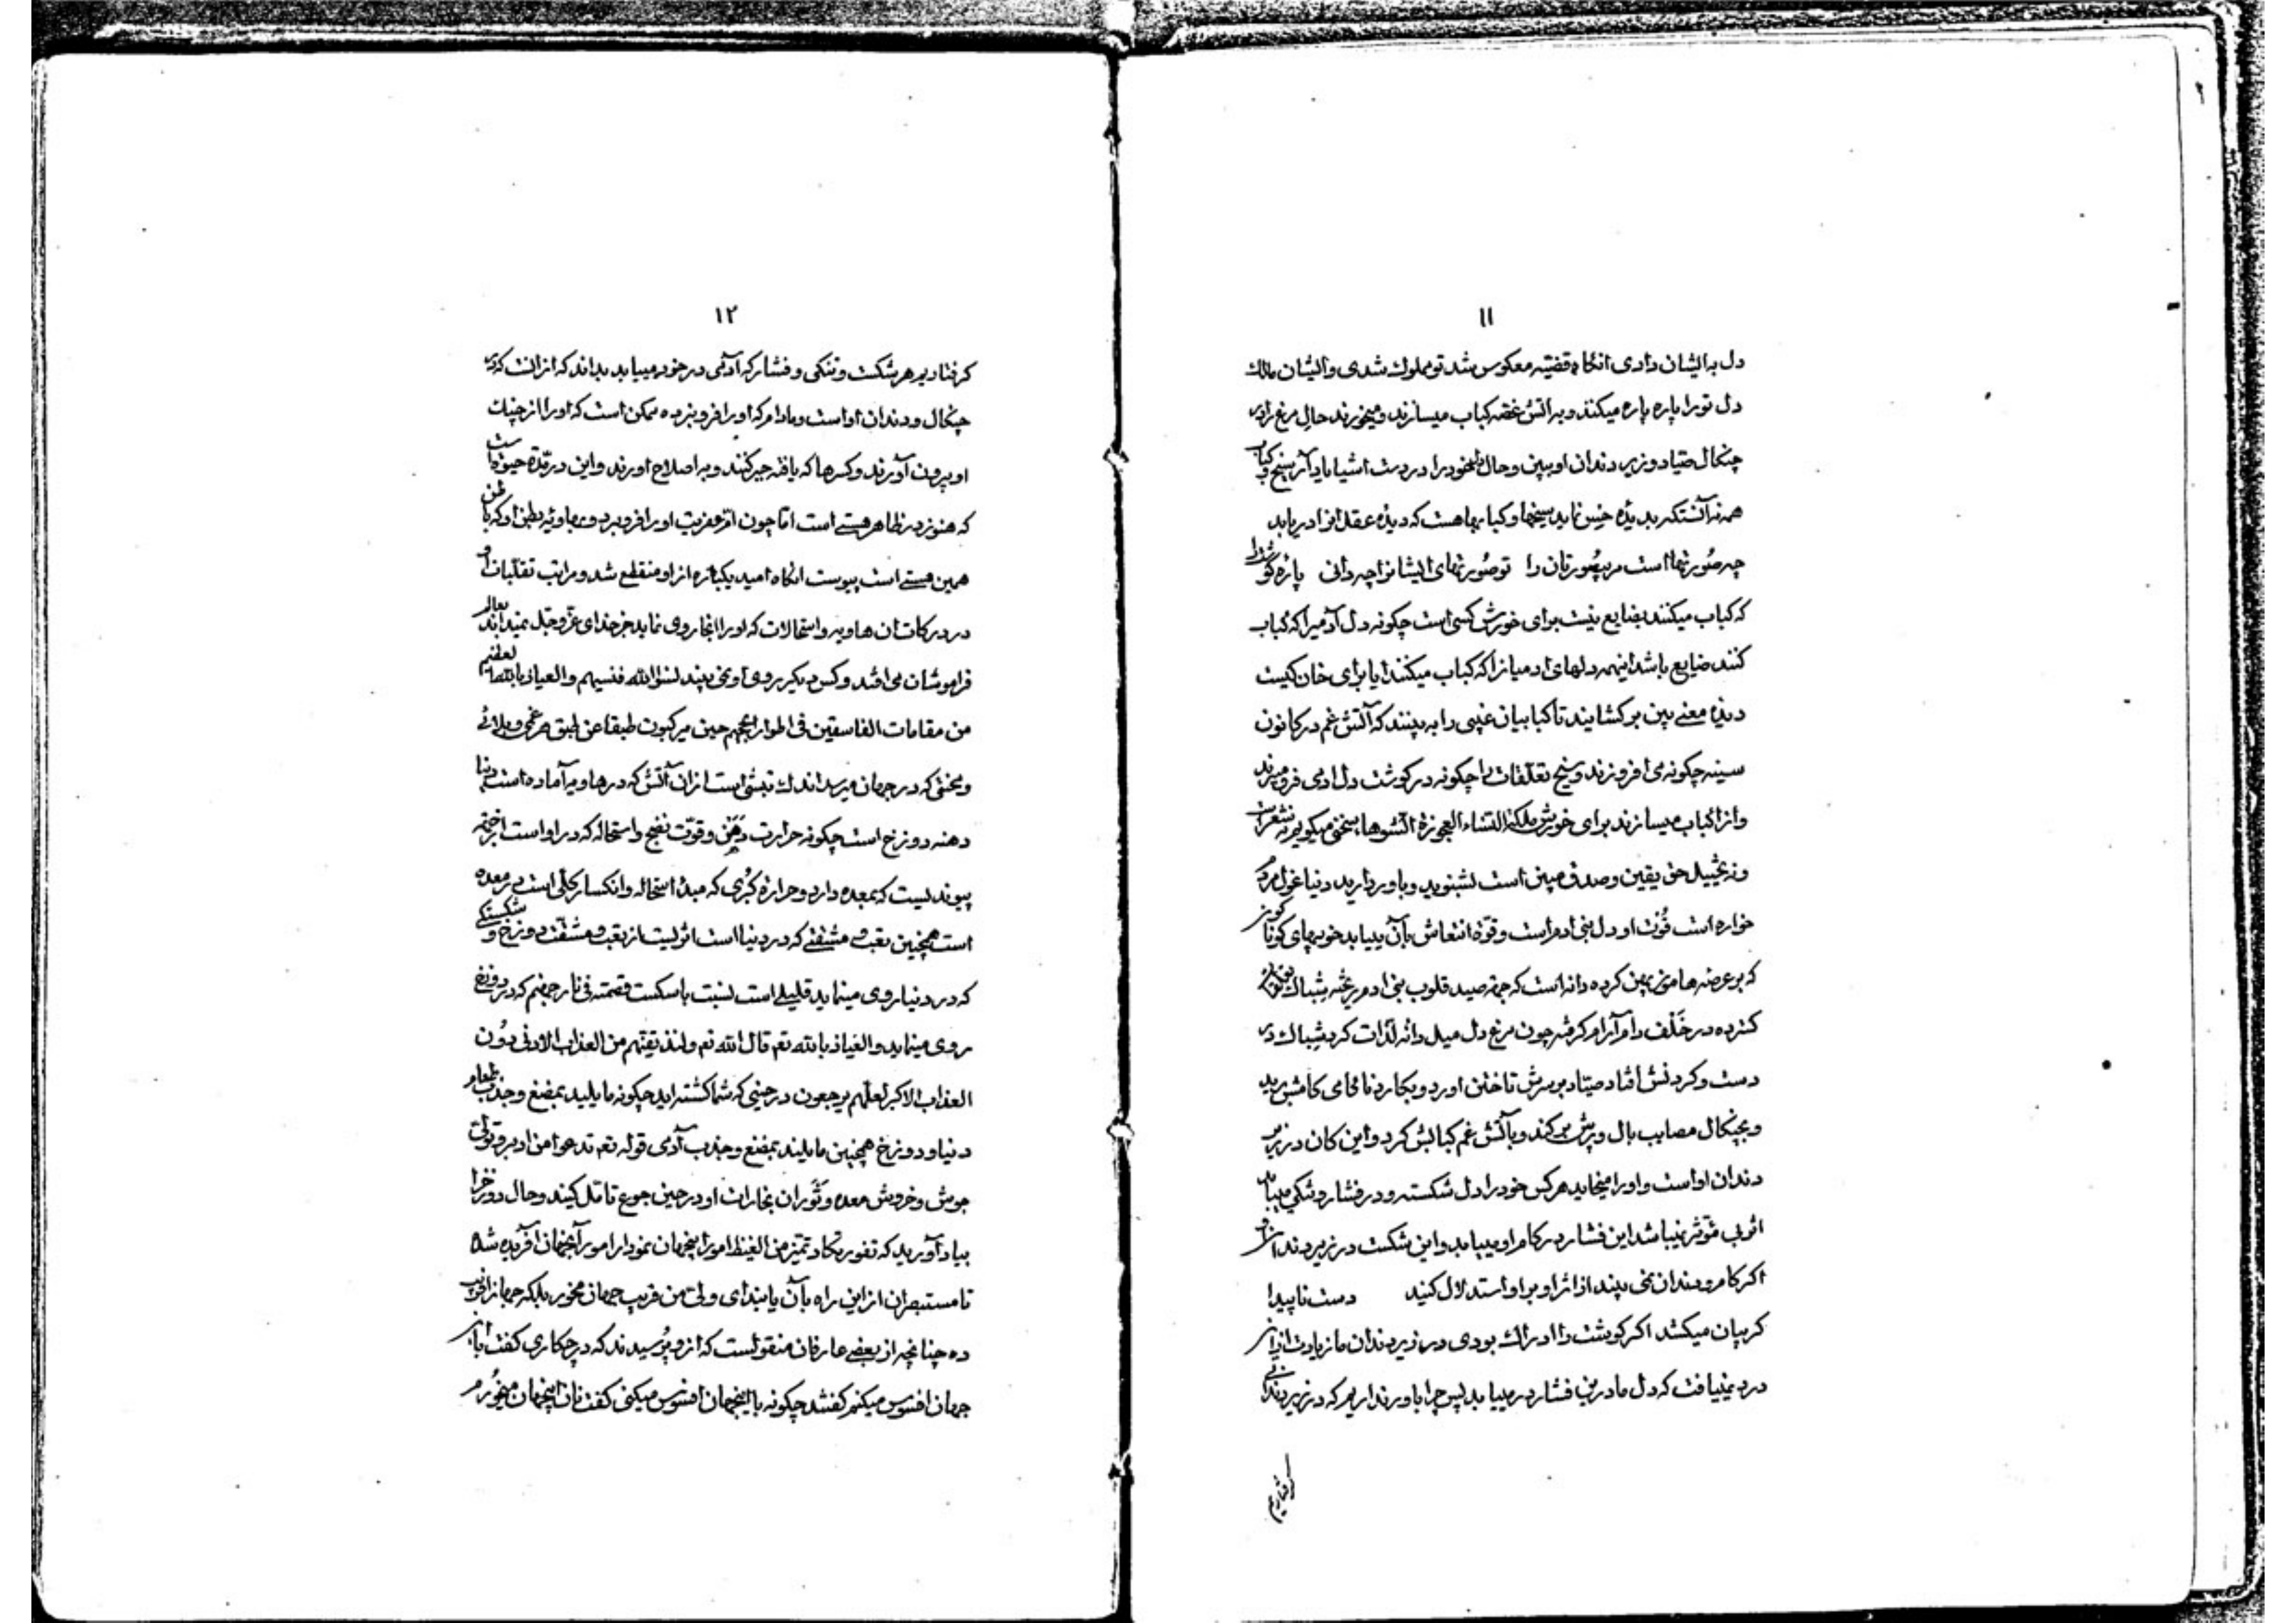 ۱۱
دل به ایشان دادی انکاه قضیه معکوس شد تو مملوك شدی و ایشان مالك
دل تو را پاره پاره میکنند و به اتش غصه کباب میسازند و میخورند حال مرغ را در
چنکال صیاد و زیر دندان او ببین و حال دل خود را در دست اشیا یاد آر سیخ و کباب
همه نه آنستکه بدیده حس نماید سیخها و کبابها هست که دیده عقل انرا دریابد
چه صُورتها است مر بیصُورتان را تو صُورتهای ایشانرا چه دانی پاره کوشترا
که کباب میکنند ضایع نیست برای خورش کسی است چکونه دل آدمیرا که کباب
کنند ضایع باشد اینهمه دلهای ادمیانرا که کباب میکنند ایا برای خان کیست
دیده معنی بین بر کشایند تا کبابیان غیبی را به بینند که آتش غم در کانون
سینه چکونه می افروزند و سیخ تعلقات را چکونه در کوشت دل ادمی فرو میبرند
و انرا کباب میسازند برای خورش ملکة النساء العجوزة الشوها، سخنی میکویم نه شعر است
و نه تخییل حق یقین و صدق مبین است بشنوید و باور دارید دنیا غول مردم
خواره است قُوت او دل بنی ادم است و قوّة انتعاش بآن مییابد خوبیهای کوناکون
که بر عرضه هامون زمین کرده دانه است که جهة صید قلوب بنی ادم ریخته شباك
کسترده در خَلْف دام آرام کرفته چون مرغ دل میل دانه لذّات کرد شباك در
دست و کردنش افتاد صیّاد بر سرش تاختن اورد و بکارد ناکامی کامش برید
و بچنکال مصایب بال و پرش بر کند و بآتش غم کبابش کرد و این کان در زیر
دندان او است و او را میخاید هر کس خود را دل شکسته و در فشار و تنکی مییابد
اثر بی مؤثر نمیباشد این فشار در کام او مییابد و این شکست در زیر دندان او
اکر کام و دندان نمی بیند از اثر او بر او استدلال کنید دست ناپیدا
کریبان میکشد اکر کوشت را ادراك بودی در زیر دندان ما زیادت از ان
درد نمییافت که دل ما درین فشار در مییابد پس چرا باور نداریم که در زیر دندانی
کرفتاریم
۱۲
کرفتاریم هر شکست و تنکی و فشار که آدمی در خود مییابد بداند که از انست که در
چنکال و دندان او است و مادام که او را فرو نبرده ممکن است که او را از چنکال
او بیرون آورند و کسرها که یافته جبر کنند و به اصلاح اورند و این در مدّة حیوة است
که هنوز در ظاهر هستی است امّا چون ان عفریت او را فرو برد و بهاویه بطن او که باطن
همین هستی است پیوست انکاه امید یکباره از او منقطع شد و مراتب تقلّبات او
در درکات ان هاویه و استحالات که او را انجا روی نماید جز خدای عزّ و جلّ نمیداند بعالم
فراموشان می افتد و کس دیکر روی او نمی بیند نسوا الله فنسیهم و العیاذ بالله العظیم
من مقامات الفاسقین فی اطوار الجحیم حین یرکبون طبقا عن طبق هر غمی و بلائی
و محنتی که در جهان میرسد اندك تبشی است از ان آتش که در هاویه آماده است دنیا
دهنه دوزخ است چکونه حرارت دَهَن و قوّت نضج و استحاله که در او است از جهة
پیوندیست که بمعده دارد و حرارة کُبری که مبدأ استحاله و انکسار کلّی است در معده
است همچنین تعب و مشقتی که در دنیا است اثریست از تعب و مشقّت دوزخ و شکستکی
که در دنیا روی مینماید قلیلی است نسبت باسکست قصمته فی نار جهنم که در دوزخ
روی مینماید و العیاذ بالله تع قال الله تع و لنذیقنّهم من العذاب الادنی دُون
العذاب الاکبر لعلّهم یرجعون در حینی که شما کشنه اید چکونه مایلید بمضغ و جذب طعام
دنیا و دوزخ همچنین مایلند بمضغ و جذب آدمی قوله تع تدعوا من ادبر و تولّی
جوش و خروش معده و ثَوران بخارات او در حین جوع تامّل کنید و حال دوزخرا
بیاد آورید که تفور تکاد تمیّز من الغیظ امور اینجهان نمودار امور آنجهان آفریده شده
تا مستبصران ازین راه بآن یابند ای ولیّ من فریب جهان مخور بلکه جهانرا فریب
ده چنانچه از بعضی عارفان منقولست که از و پُرسیدند که در چکاری کفت با این
جهان افسوس میکنم کفتند چکونه با اینجهان افسوس میکنی کفت نان اینجهان میخورم